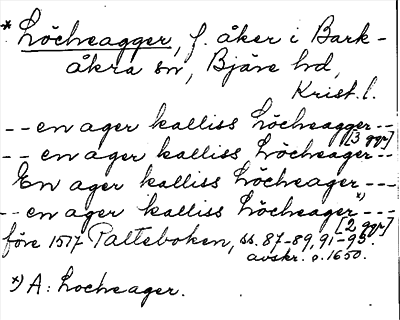 * Löcheagger, f. åker i Bark-
åkra sn, Bjäre hd,
Krist. l.
-- en ager kalliss Löcheagger --
[3 ggr]
-- en ager kalliss Löcheager --
En ager kalliss Löcheager ---
-- en ager kalliss Löcheager *) ---
[2 ggr]
före 1517 Palteboken, ss. 87-89, 91-95.
avskr. o. 1650.
*) A: Locheager.